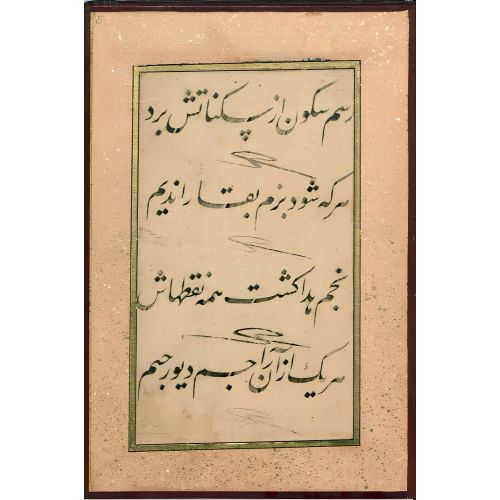 رسم سکون از سکناتش برد
هر که شود بزم بقا را ندیم
نجم هدا کشت همه نقطهاش
هر یک از آن راجم دیو رجیم